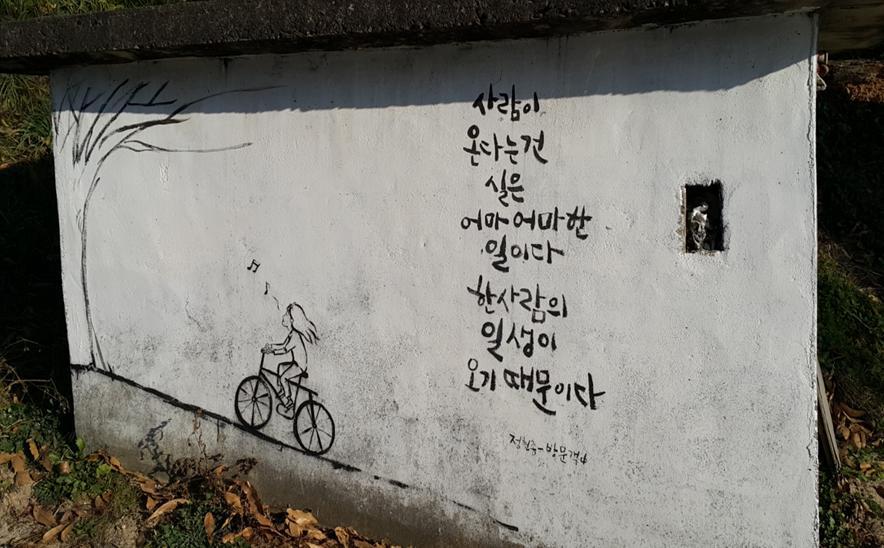 사람이
온다는건
실은
어마어마한
일이다
한사람의
일생이
오기 때문이다
정현종-방문객中